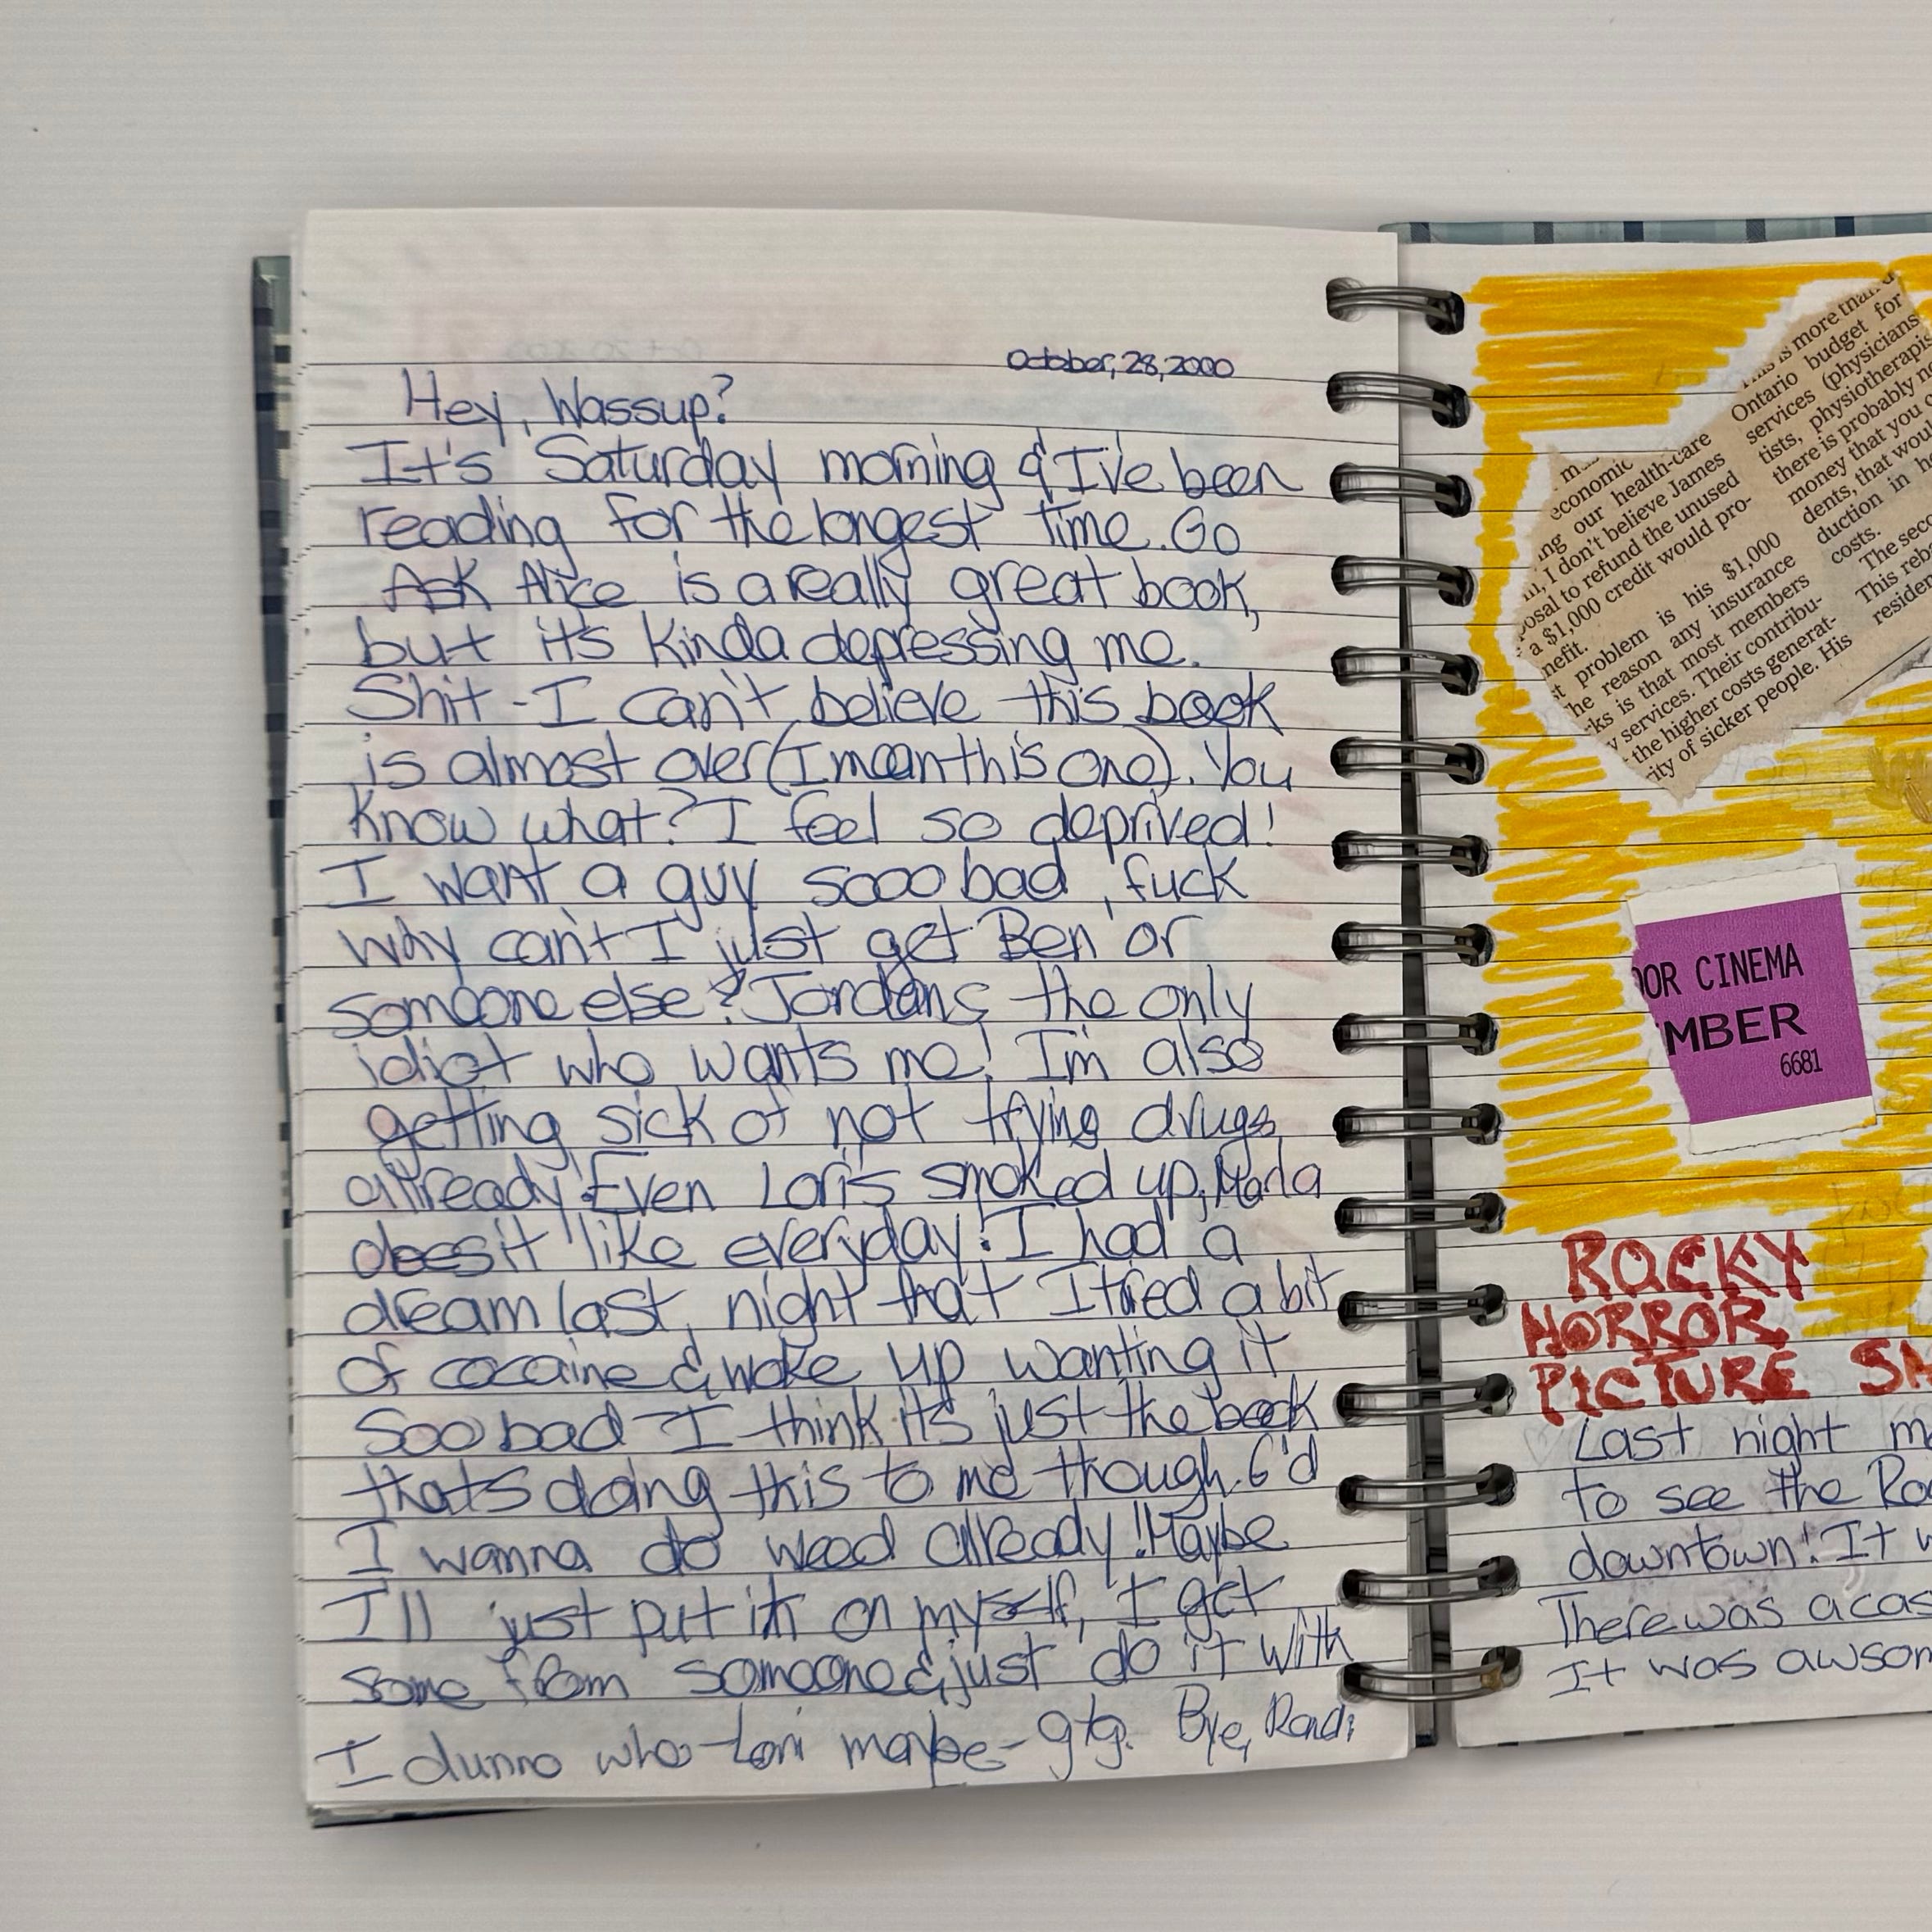 October, 28, 2000
Hey, Wassup?
It's Saturday morning & I've been
reading for the longest time. Go
Ask Alice is a really great book,
but it's kinda depressing me.
Shit - I can't believe this book
is almost over (I mean this one). You
know what? I feel so deprived!
I want a guy sooo bad, fuck
why can't I just get Ben or
someone else? Jordans the only
idiot who wants me! I'm also
getting sick of not trying drugs
allready! Even Lori's smoked up, Marla
does it like everyday! I had a
dream last night that I tried a bit
of cocaine & woke up wanting it
soo bad - I think it's just the book
thats doing this to me though. G'd
I wanna do weed allready! Maybe
I'll just put it on myself, I get
some from someone & just do it with
I dunno who - Lori maybe - gtg. Bye, Randi
is more than
Ontario budget for
services (physicians
tists, physiotherapis
there is probably no
money that you
dents, that woul
duction in he
costs.
The sec
This reb
residen
economic
ing our health-care
I don't believe James
osal to refund the unused
a $1,000 credit would pro-
nefit.
st problem is his $1,000
he reason any insurance
ks is that most members
y services. Their contribu-
the higher costs generat-
ity of sicker people. His
OOR CINEMA
MBER
6681
ROCKY
HORROR
PICTURE SH
Last night m
to see the Roc
downtown! It w
There was a cas
It was awsom